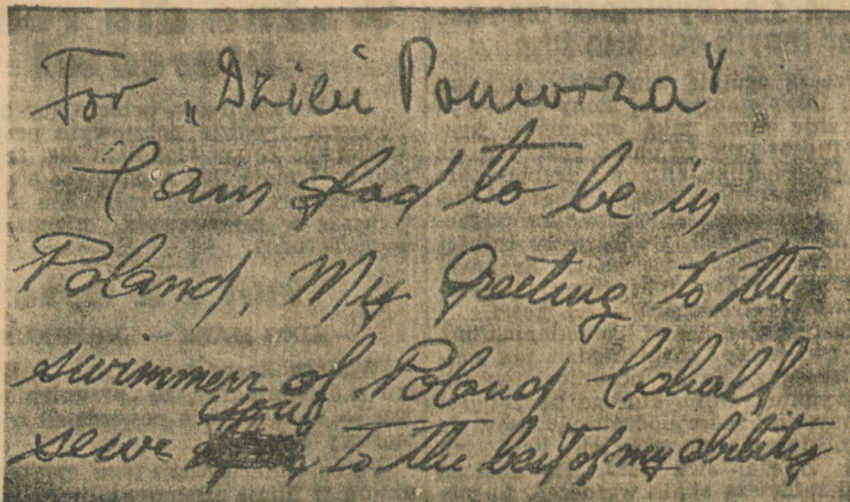 For „Dzień Pomorza"
I am glad to be in
Poland. My Greeting to the
swimmers of Poland I shall
serve you to the best of my ability